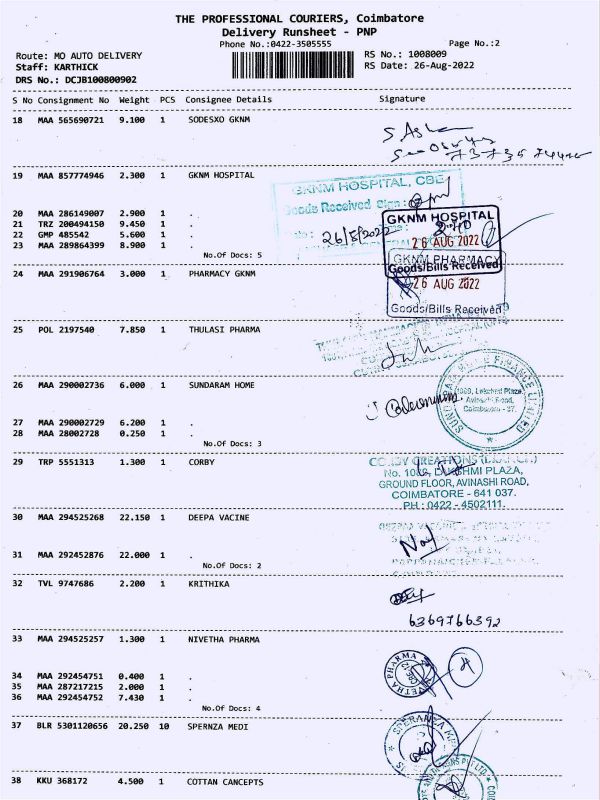 THE PROFESSIONAL COURIERS, Coimbatore
Delivery Runsheet - PNP
Phone No.:0422-3505555
Page No.:2
Route: MO AUTO DELIVERY
RS No.: 1008009
Staff: KARTHICK
RS Date: 26-Aug-2022
DRS No.: DCJB100800902
S No Consignment No Weight PCS Consignee Details Signature
18 MAA 565690721 9.100 1 SODESXO GKNM
19 MAA 857774946 2.300 1 GKNM HOSPITAL
GKNM HOSPITAL, CBE
Goods Received Sign:
20 MAA 286149007 2.900 1 .
GKNM HOSPITAL
21 TRZ 200494150 9.450 1 .
22 GMP 485542 5.600 1 .
26/8/2022
26 AUG 2022
23 MAA 289864399 8.900 1 .
No.Of Docs: 5
GKNM PHARMACY
Goods/Bills Received
24 MAA 291906764 3.000 1 PHARMACY GKNM
26 AUG 2022
Goods/Bills Received
25 POL 2197540 7.850 1 THULASI PHARMA
26 MAA 290002736 6.000 1 SUNDARAM HOME
1089, Lakshmi Plaza,
Avinashi Road,
Coimbatore - 37.
27 MAA 290002729 6.200 1 .
28 MAA 28002728 0.250 1 .
No.Of Docs: 3
29 TRP 5551313 1.300 1 CORBY
No. 1088, LAKSHMI PLAZA,
GROUND FLOOR, AVINASHI ROAD,
COIMBATORE - 641 037.
PH : 0422 - 4502111.
30 MAA 294525268 22.150 1 DEEPA VACINE
31 MAA 292452876 22.000 1 .
No.Of Docs: 2
32 TVL 9747686 2.200 1 KRITHIKA
6369766392
33 MAA 294525257 1.300 1 NIVETHA PHARMA
34 MAA 292454751 0.400 1 .
35 MAA 287217215 2.000 1 .
36 MAA 292454752 7.430 1 .
No.Of Docs: 4
37 BLR 5301120656 20.250 10 SPERNZA MEDI
38 KKU 368172 4.500 1 COTTAN CANCEPTS